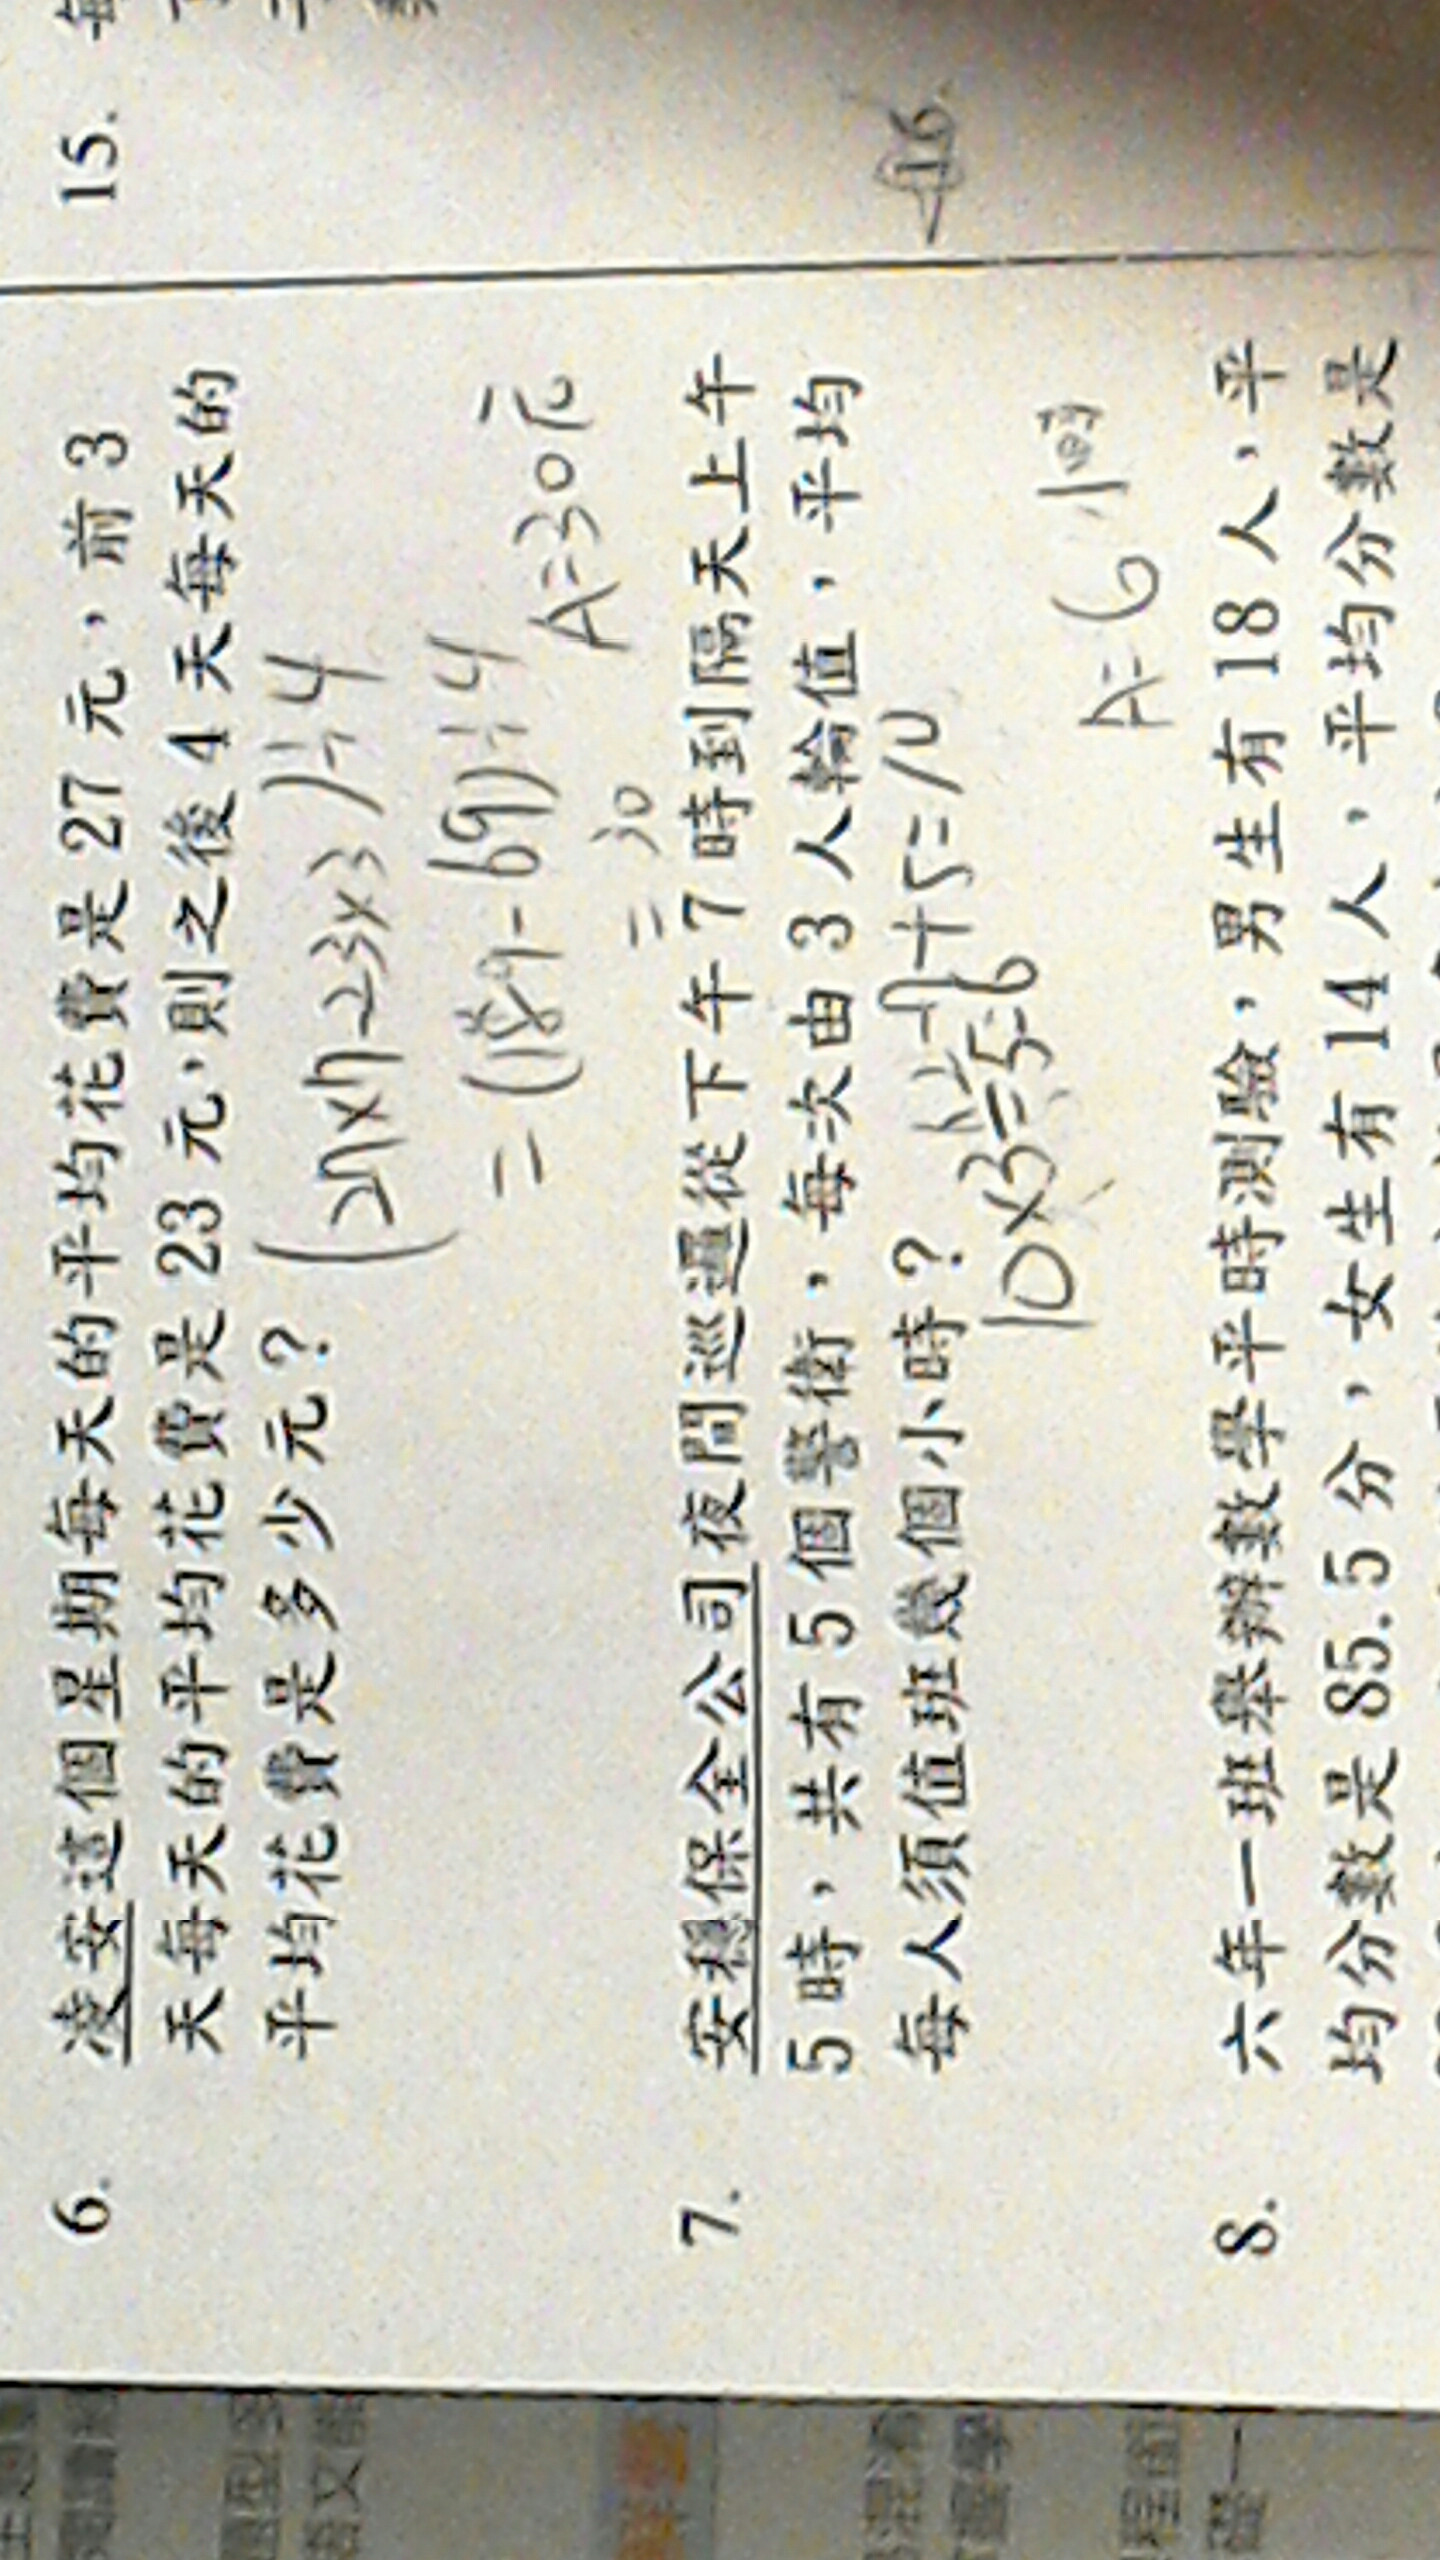 6. 凌安這個星期每天的平均花費是 27 元，前 3
天每天的平均花費是 23 元，則之後 4 天每天的
平均花費是多少元？
(27×7-23×3)÷4
=(189-69)÷4
=30
A:30元
7. 安穩保全公司夜間巡邏從下午 7 時到隔天上午
5 時，共有 5 個警衛，每次由 3 人輪值，平均
每人須值班幾個小時？
12-7+5=10
10×3÷5=6
A:6小時
8. 六年一班舉辦數學平時測驗，男生有 18 人，平
均分數是 85.5 分，女生有 14 人，平均分數是
15.
16